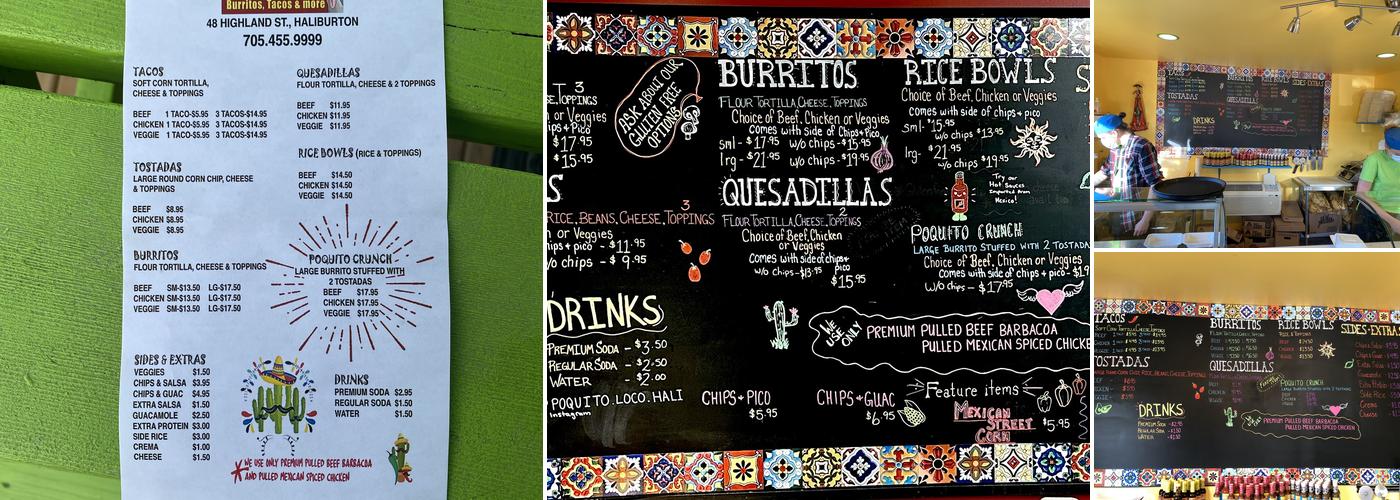 Burritos, Tacos & more
48 HIGHLAND ST., HALIBURTON
705.455.9999
TACOS
SOFT CORN TORTILLA,
CHEESE & TOPPINGS
BEEF 1 TACO-$5.95 3 TACOS-$14.95
CHICKEN 1 TACO-$5.95 3 TACOS-$14.95
VEGGIE 1 TACO-$5.95 3 TACOS-$14.95
TOSTADAS
LARGE ROUND CORN CHIP, CHEESE
& TOPPINGS
BEEF $8.95
CHICKEN $8.95
VEGGIE $8.95
BURRITOS
FLOUR TORTILLA, CHEESE & TOPPINGS
BEEF SM-$13.50 LG-$17.50
CHICKEN SM-$13.50 LG-$17.50
VEGGIE SM-$13.50 LG-$17.50
SIDES & EXTRAS
VEGGIES $1.50
CHIPS & SALSA $3.95
CHIPS & GUAC $4.95
EXTRA SALSA $1.50
GUACAMOLE $2.50
EXTRA PROTEIN $3.00
SIDE RICE $3.00
CREMA $1.00
CHEESE $1.50
QUESADILLAS
FLOUR TORTILLA, CHEESE & 2 TOPPINGS
BEEF $11.95
CHICKEN $11.95
VEGGIE $11.95
RICE BOWLS (RICE & TOPPINGS)
BEEF $14.50
CHICKEN $14.50
VEGGIE $14.50
POQUITO CRUNCH
LARGE BURRITO STUFFED WITH
2 TOSTADAS
BEEF $17.95
CHICKEN $17.95
VEGGIE $17.95
DRINKS
PREMIUM SODA $2.95
REGULAR SODA $1.50
WATER $1.50
*WE USE ONLY PREMIUM PULLED BEEF BARBACOA
AND PULLED MEXICAN SPICED CHICKEN
3
TOPPINGS
or Veggies
chips + Pico
$17.95
$15.95
ASK ABOUT OUR
GLUTEN FREE
OPTIONS
S
RICE, BEANS, CHEESE, TOPPINGS 3
or Veggies
chips + pico - $11.95
w/o chips - $9.95
DRINKS
PREMIUM SODA - $3.50
REGULAR SODA - $2.50
WATER - $2.00
POQUITO.LOCO.HALI
Instagram
BURRITOS
FLOUR TORTILLA, CHEESE, TOPPINGS
Choice of Beef, Chicken or Veggies
comes with side of Chips + Pico
sml - $17.95 w/o chips - $15.95
lrg - $21.95 w/o chips - $19.95
QUESADILLAS
FLOUR TORTILLA, CHEESE, TOPPINGS 2
Choice of Beef, Chicken
or Veggies
Comes with side of chips +
pico
w/o chips - $13.95 $15.95
CHIPS + PICO
$5.95
CHIPS + GUAC
$6.95
RICE BOWLS
Choice of Beef, Chicken or Veggies
Comes with side of chips + pico
sml - $15.95 w/o chips $13.95
lrg - $21.95
w/o chips $19.95
Try our
Hot Sauces
Imported from
Mexico!
POQUITO CRUNCH
LARGE BURRITO STUFFED WITH 2 TOSTADA
Choice of Beef, Chicken or Veggies
Comes with side of chips + pico - $19
W/o chips - $17.95
WE USE ONLY
PREMIUM PULLED BEEF BARBACOA
PULLED MEXICAN SPICED CHICKE
Feature items
MEXICAN
STREET
CORN
$5.95
TACOS
TOSTADAS
BURRITOS
RICE BOWLS
SIDES-EXTRAS
QUESADILLAS
DRINKS
TACOS
TOSTADAS
DRINKS
PREMIUM SODA - $2.95
REGULAR SODA - $1.50
WATER - $1.50
BURRITOS
QUESADILLAS
RICE BOWLS
POQUITO CRUNCH
PREMIUM PULLED BEEF BARBACOA
PULLED MEXICAN SPICED CHICKEN
SIDES-EXTRAS